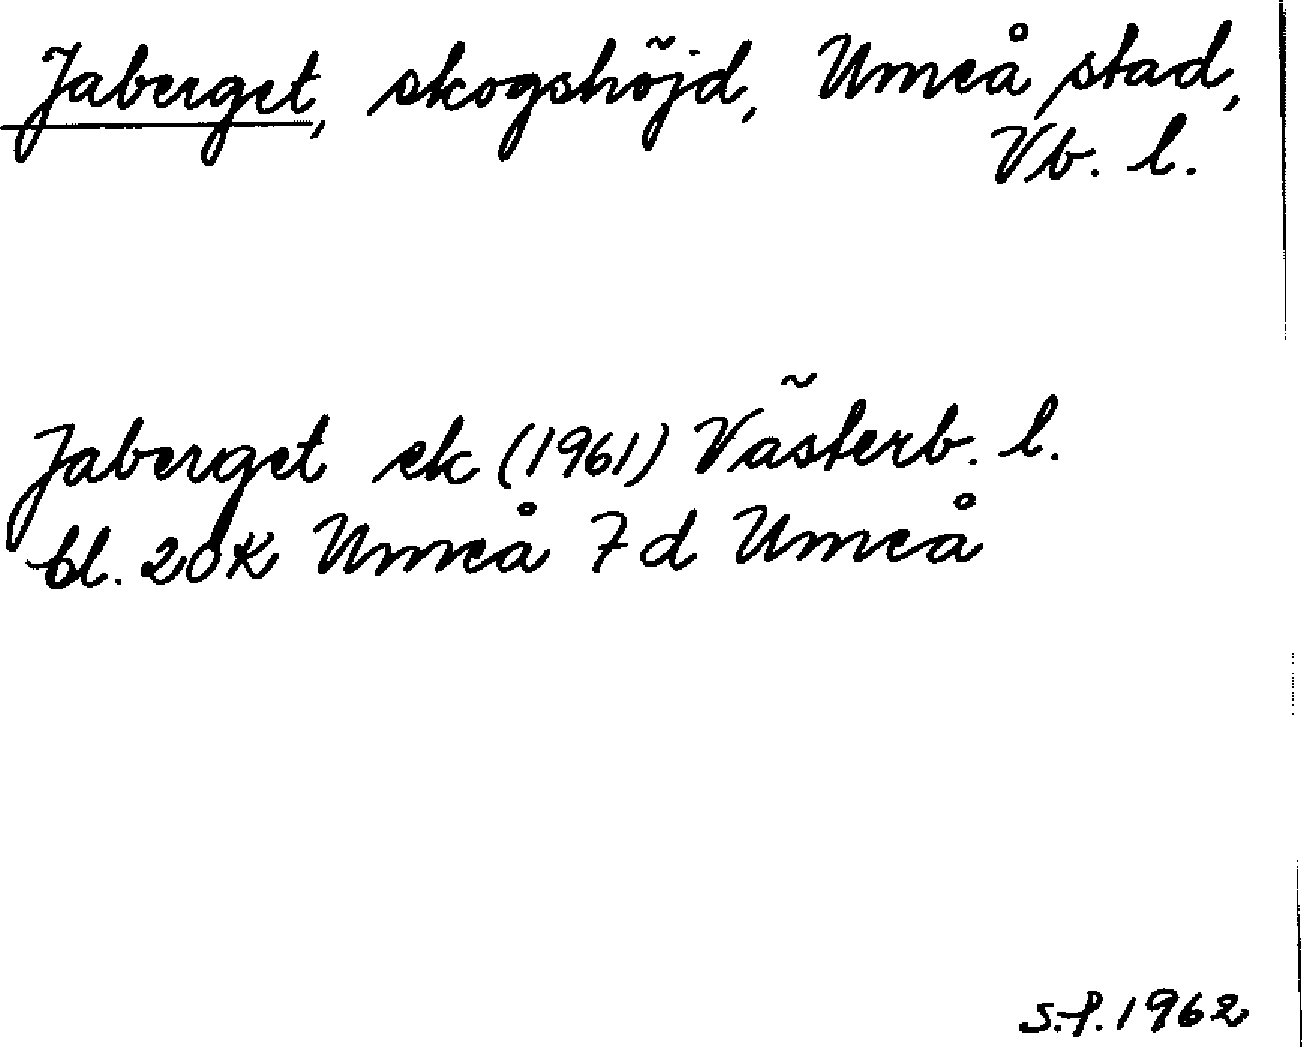 Jaberget, skogshöjd, Umeå stad,
Vb. l.
Jaberget ek (1961) Västerb. l.
bl. 20K Umeå 7d Umeå
S.P. 1962